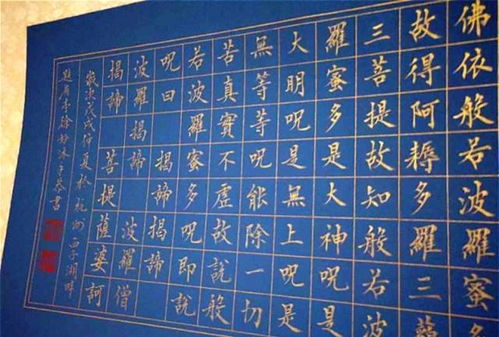 佛依般若波羅蜜多
故得阿耨多羅三藐
三菩提故知般若波
羅蜜多是大神呪是
大明呪是無上呪是
無等等呪能除一切
苦真實不虛故說般
若波羅蜜多呪即說
呪曰 揭諦揭諦
波羅揭諦 波羅僧
揭諦 菩提薩婆訶
歲次戊戌仲夏於杭州西子湖畔
沐手恭書